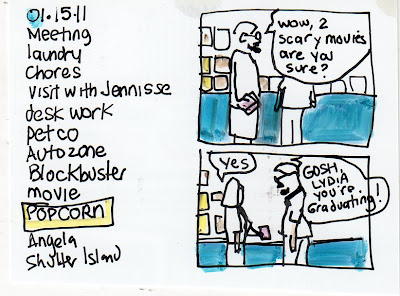 01.15.11
Meeting
laundry
Chores
visit with Jennisse
desk work
petco
Autozone
Blockbuster
movie
POPCORN
Angela
Shutter Island
wow, 2
scary movies
are you
sure?
yes
GOSH,
LYDIA
you're
Graduating!